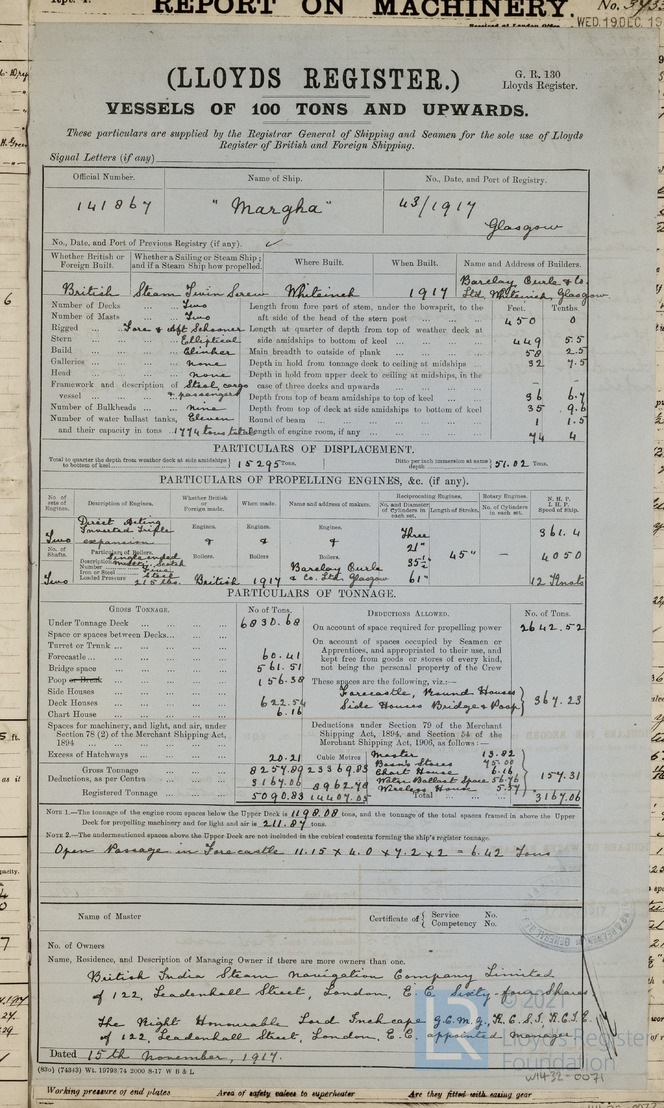 REPORT ON MACHINERY.
WED. 19 DEC. 19
(LLOYDS REGISTER.)
G. R. 130
Lloyds Register.
VESSELS OF 100 TONS AND UPWARDS.
These particulars are supplied by the Registrar General of Shipping and Seamen for the sole use of Lloyds
Register of British and Foreign Shipping.
Signal Letters (if any)
Official Number. Name of Ship. No., Date, and Port of Registry.
141867 "Margha" 43/1917
Glasgow
No., Date, and Port of Previous Registry (if any).
Whether British or Foreign Built. Whether a Sailing or Steam Ship; and if a Steam Ship how propelled. Where Built. When Built. Name and Address of Builders.
British Steam Twin Screw Whiteinch 1917 Barclay Curle & Co. Ltd. Whiteinch, Glasgow
Feet. Tenths.
Number of Decks Two Length from fore part of stem, under the bowsprit, to the
Number of Masts Two aft side of the head of the stern post 450 0
Rigged Fore & Aft Schooner Length at quarter of depth from top of weather deck at
Stern Elliptical side amidships to bottom of keel 449 5.5
Build Clincher Main breadth to outside of plank 58 2.5
Galleries None Depth in hold from tonnage deck to ceiling at midships 32 7.5
Head None Depth in hold from upper deck to ceiling at midships, in the
Framework and description of Steel, cargo case of three decks and upwards – –
vessel & passengers Depth from top of beam amidships to top of keel 36 6.7
Number of Bulkheads Nine Depth from top of deck at side amidships to bottom of keel 35 9.6
Number of water ballast tanks, Eleven Round of beam 1 1.5
and their capacity in tons 1774 tons total Length of engine room, if any 74 4
PARTICULARS OF DISPLACEMENT.
Total to quarter the depth from weather deck at side amidships to bottom of keel 15295 Tons. Ditto per inch immersion at same depth 51.02 Tons.
PARTICULARS OF PROPELLING ENGINES, &c. (if any).
No. of sets of Engines. Description of Engines. Whether British or Foreign made. When made. Name and address of makers. Reciprocating Engines. Rotary Engines. N. H. P. I. H. P. Speed of Ship.
No. and Diameter of Cylinders in each set. Length of Stroke. No. of Cylinders in each set.
Two Direct Acting Inverted Triple expansion Engines. Engines. Engines. Three 361.4
No. of Shafts. Particulars of Boilers. Boilers. Boilers Boilers. 21" 35½" 45" – 4050
Description Single ended Multr. Scotch
Number Five
Iron or Steel Steel
Two Loaded Pressure 215 lbs. British 1917 Barclay Curle & Co. Ltd. Glasgow 61" 12 Knots
PARTICULARS OF TONNAGE.
GROSS TONNAGE. No. of Tons. DEDUCTIONS ALLOWED. No. of Tons.
Under Tonnage Deck 6830.68 On account of space required for propelling power 2642.52
Space or spaces between Decks On account of spaces occupied by Seamen or
Turret or Trunk Apprentices, and appropriated to their use, and
Forecastle 60.41 kept free from goods or stores of every kind,
Bridge space 561.51 not being the personal property of the Crew
Poop or Break 156.38 These spaces are the following, viz.:—
Side Houses Forecastle, Round Houses
Deck Houses 622.54 Side Houses Bridge & Poop 367.23
Chart House 6.16
Spaces for machinery, and light, and air, under Deductions under Section 79 of the Merchant
Section 78 (2) of the Merchant Shipping Act, Shipping Act, 1894, and Section 54 of the
1894 Merchant Shipping Act, 1906, as follows:—
Excess of Hatchways 20.21 Cubic Metres Master 13.82
Gross Tonnage 8257.89 23369.83 Bosn's Stores 75.00
Deductions, as per Contra 3167.06 8962.78 Chart House 6.16
Water Ballast Space 56.76 157.31
Registered Tonnage 5090.83 14407.05 Wireless House 5.57
Total 3167.06
NOTE 1.—The tonnage of the engine room spaces below the Upper Deck is 1198.08 tons, and the tonnage of the total spaces framed in above the Upper
Deck for propelling machinery and for light and air is 211.87 tons.
NOTE 2.—The undermentioned spaces above the Upper Deck are not included in the cubical contents forming the ship's register tonnage.
Open Passage in Forecastle 11.15 x 4.0 x 7.2 x 2 = 6.42 Tons
Name of Master Certificate of { Service No. Competency No.
No. of Owners
Name, Residence, and Description of Managing Owner if there are more owners than one.
British India Steam Navigation Company Limited
of 122, Leadenhall Street, London, E C Sixty four Shares.
The Right Honourable Lord Inchcape G.C.M.G., K.C.S.I. K.C.I.E.
of 122, Leadenhall Street, London, E.C. appointed manager
Dated 15th November, 1917.
(83o) (74343) Wt. 19793.74 2000 8-17 W B & L
© 2021
LR Lloyd's Register
Foundation
W1432-0071
Working pressure of end plates Area of safety valves to superheater Are they fitted with easing gear